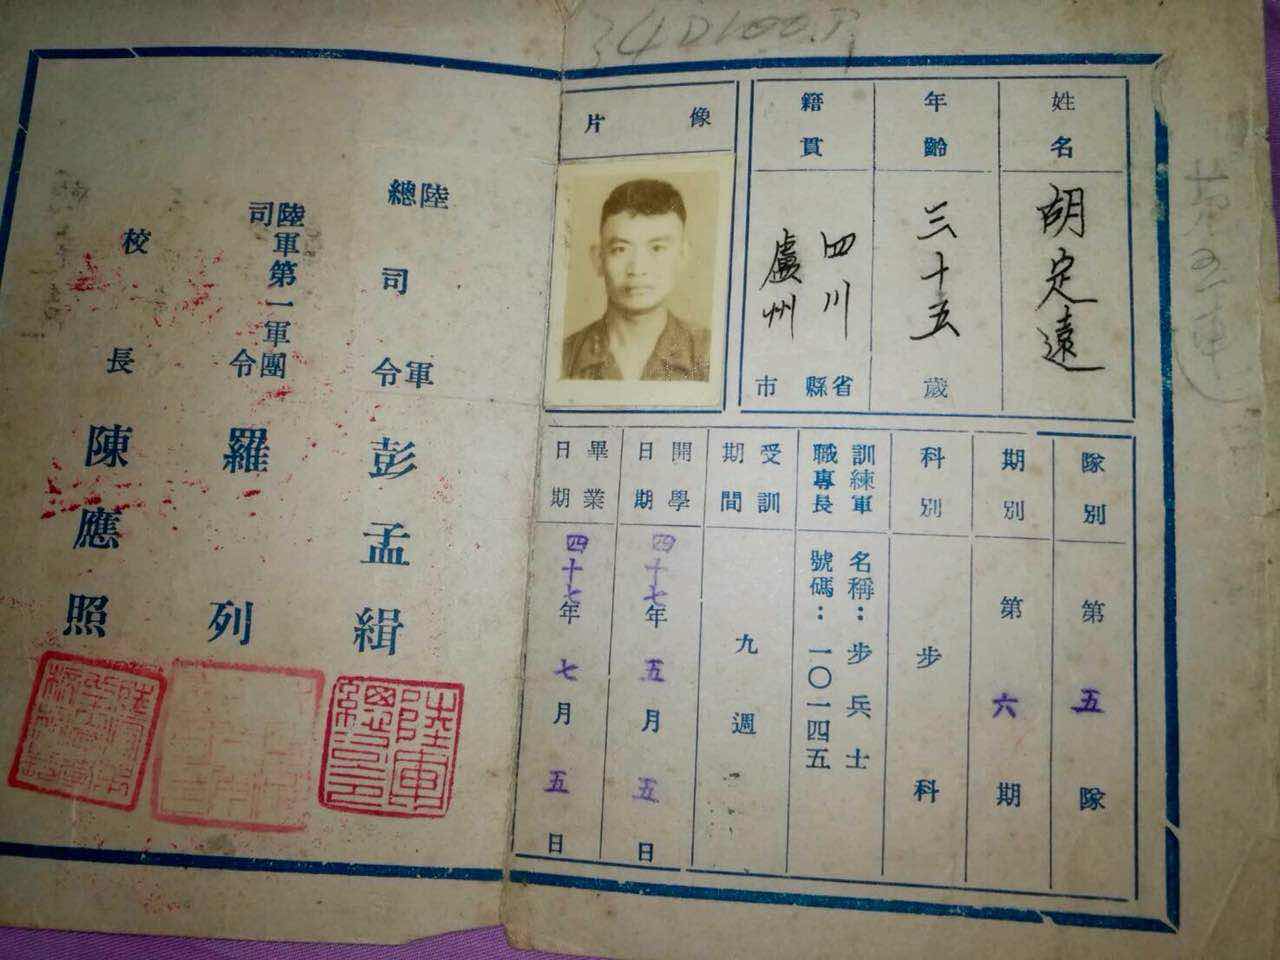 姓名
胡定遠
年齡
三十五
歲
籍貫
四川
省縣
盧州
市
像片
隊別
第五隊
期別
第六期
科別
步科
訓練軍
職專長
名稱：步兵士
號碼：一〇一四五
受訓
期間
九週
開學
日期
四十七年五月五日
畢業
日期
四十七年七月五日
陸軍
總司令
彭孟緝
陸軍第一軍團
司令
羅列
校長
陳應照